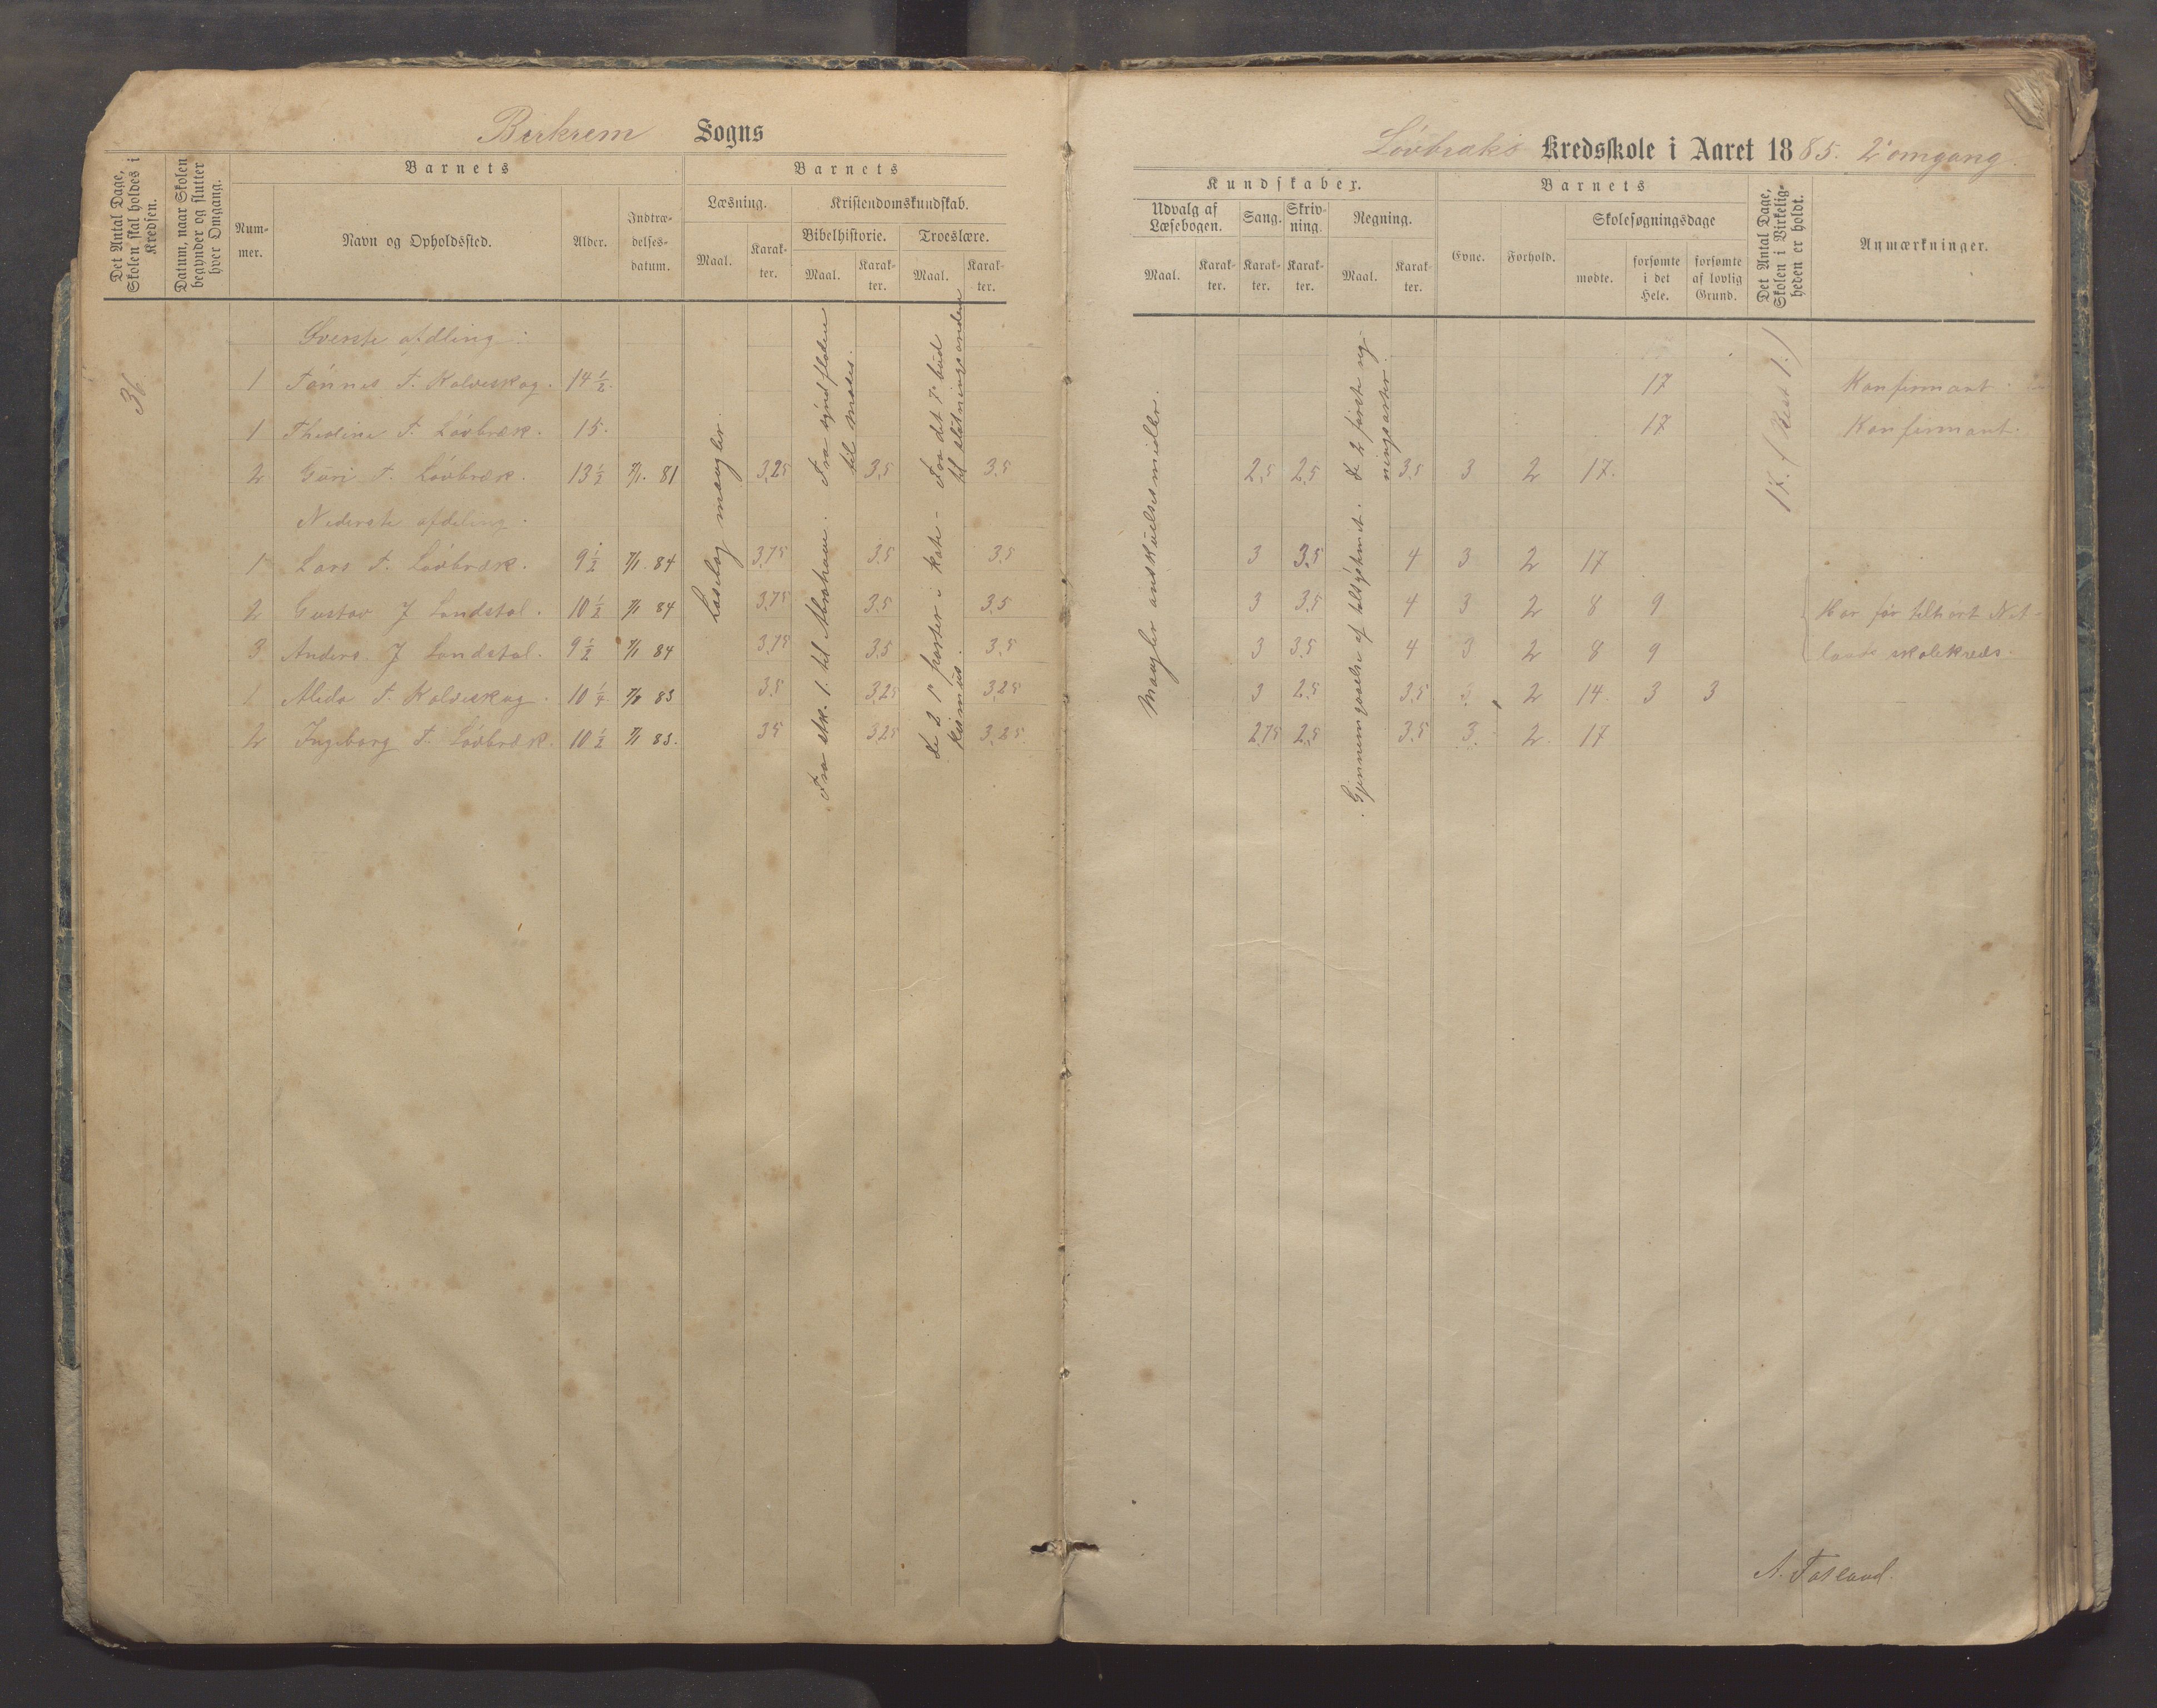 Berkrem Sogns
Det Antal Dage, Skolen skal holdes i Kredsen.
Datum, naar Skolen begynder og slutter hver Omgang.
Barnets
Nummer.
Navn og Opholdssted.
Alder.
Indtrædelsesdatum.
Barnets
Læsning.
Maal.
Karakter.
Kristendomskundskab.
Bibelhistorie.
Maal.
Karakter.
Troeslære.
Maal.
Karakter.
36
Øverste afdling:
1 Tönnes T. Kolveskog. 14 1/2.
1 Thedine T. Lövbræk. 15.
2 Guri T. Lövbræk. 13 1/2 7/1. 81 3,25 3,5 3,5
Nederste afdeling.
1 Lars T. Lövbræk. 9 1/2 7/1. 84 3,75 3,5 3,5
2 Gustav J Landstal. 10 1/2 7/1 84 3,75 3,5 3,5
3 Anders J Landstal. 9 1/2 7/1 84 3,75 3,5 3,5
Aleda T. Kolveskog. 10 1/4 83 3,5 3,25 3,25
2 Ingeborg T. Lövbræk. 10 1/2 7/1 83. 3,5 3,25 3,25
Læsebog mangler.
Fra syndfloden til Moses.
Fra stk. 1. til Abraham.
Fra det 7de bud til slutningsanden
De 2 1ste parter i katekismus.
Lövbræks Kredsskole i Aaret 1885. 2den omgang.
Kundskaber.
Udvalg af Læsebogen.
Maal.
Karakter.
Sang.
Karakter.
Skrivning.
Karakter.
Regning.
Maal.
Karakter.
Barnets
Evne.
Forhold.
Skolesøgningsdage
mødte.
forsømte i det Hele.
forsømte af lovlig Grund.
Det Antal Dage, Skolen i Virkeligheden er holdt.
Anmærkninger.
17 Konfirmant.
17 Konfirmant.
2,5 2,5 3,5 3 2 17.
3 3,5 4 3 2 17
3 3,5 4 3 2 8 9 Har før tilhørt Net-
3 3,5 4 3 2 8 9 lands skolekreds.
3 2,5 3,5 2 14. 3 3
2,75 2,5 3,5 3. 2. 17
Mangler anskuelsesmidler.
De 2 første regningsarter.
Gjennemgaaelse af talsystemet.
17. (Rest 1.)